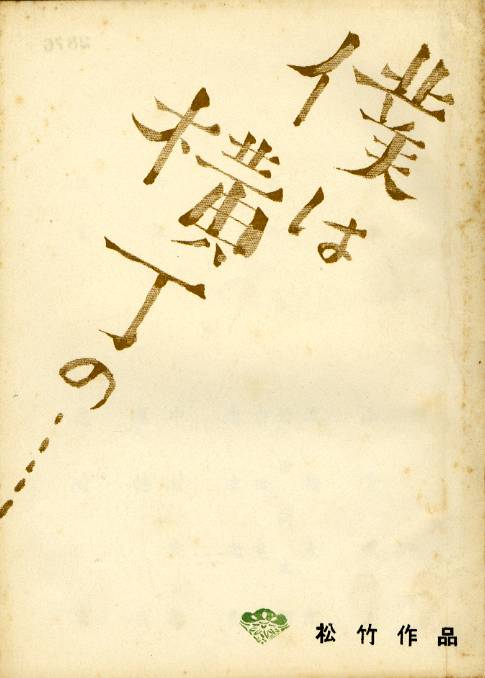 僕は横丁の……
松竹作品